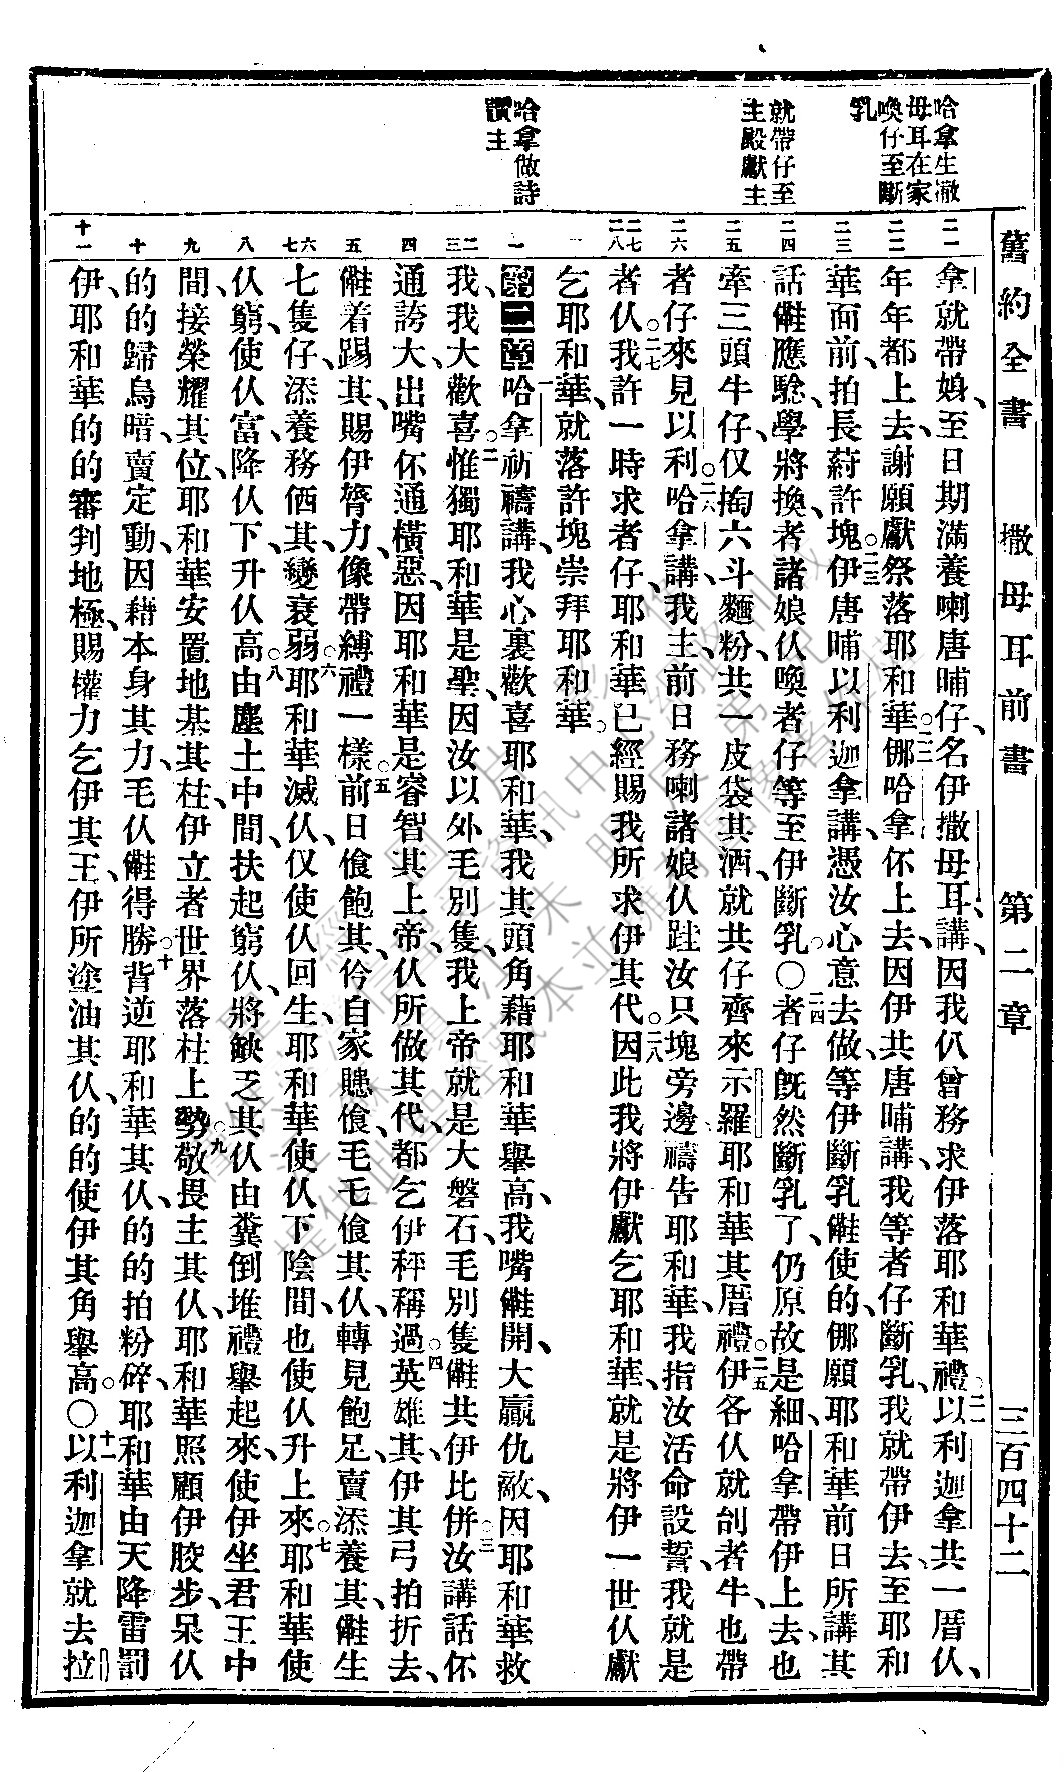 舊約全書 撒母耳前書 第二章 三百四十二
哈拿生撒
母耳在家
喚仔至斷
乳
就帶仔至
主殿獻主
哈拿做詩
讚主
二一 二二 二三 二四 二五 二六 二七 二八 一 二 三 四 五 六 七 八 九 十 十一
拿就帶娠、至日期滿養喇唐晡仔、名伊撒母耳、講、因我仈曾務求伊落耶和華禮。二一以利迦拿共一厝仈、
年年都上去、謝願獻祭落耶和華。二二㑚哈拿伓上去、因伊共唐晡講、我等者仔斷乳、我就帶伊去、至耶和
華面前、拍長葤許塊。二三伊唐晡以利迦拿講、憑汝心意去做、等伊斷乳、㑚使的、㑚願耶和華前日所講其
話㑚應驗、學將換、者諸娘仈喚者仔等至伊斷乳。〇二四者仔旣然斷乳了、仍原故是細、哈拿帶伊上去、也
牽三頭牛仔、仅掏六斗麵粉、共一皮袋其酒、就共仔齊來示羅耶和華其厝禮。二五伊各仈就刣者牛、也帶
者仔來見以利。二六哈拿講、我主、前日務喇諸娘仈跬汝只塊旁邊禱告耶和華、我指汝活命設誓、我就是
者仈。二七我許一時求者仔、耶和華已經賜我所求伊其代。二八因此我將伊獻乞耶和華、就是將伊一世仈獻
乞耶和華、就落許塊崇拜耶和華。
第二章 一哈拿祈禱講、我心裏歡喜耶和華、我其頭角藉耶和華舉高、我嘴㑚開、大贏仇敵、因耶和華救
我、我大歡喜。二惟獨耶和華是聖、因汝以外毛別隻、我上帝就是大磐石、毛別隻㑚共伊比併。三汝講話伓
通誇大、出嘴伓通橫惡、因耶和華是睿智其上帝、仈所做其代、都乞伊秤稱過。四英雄其、伊其弓拍折去、
㑚着踢其、賜伊膂力、像帶縛禮一樣。五前日飧飽其、伶自家賰飧、毛乇飧其仈、轉見飽足、賣添養其、㑚生
七隻仔、添養務価其、變衰弱。六耶和華滅仈、仅使仈回生、耶和華使仈下陰間、也使仈升上來。七耶和華使
仈窮、使仈富、降仈下、升仈高。八由塵土中間、扶起窮仈、將缺乏其仈、由糞倒堆禮舉起來、使伊坐君王中
間、接榮耀其位、耶和華安置地基其柱、伊立者世界落柱上勢。九敬畏主其仈、耶和華照顧伊骹步、呆仈
的的歸烏暗、賣定動、因藉本身其力、毛仈㑚得勝。十背逆耶和華其仈、的的拍粉碎、耶和華由天降雷罰
伊、耶和華的的審判地極、賜權力乞伊其王、伊所塗油其仈、的的使伊其角舉高。〇十一以利迦拿就去拉